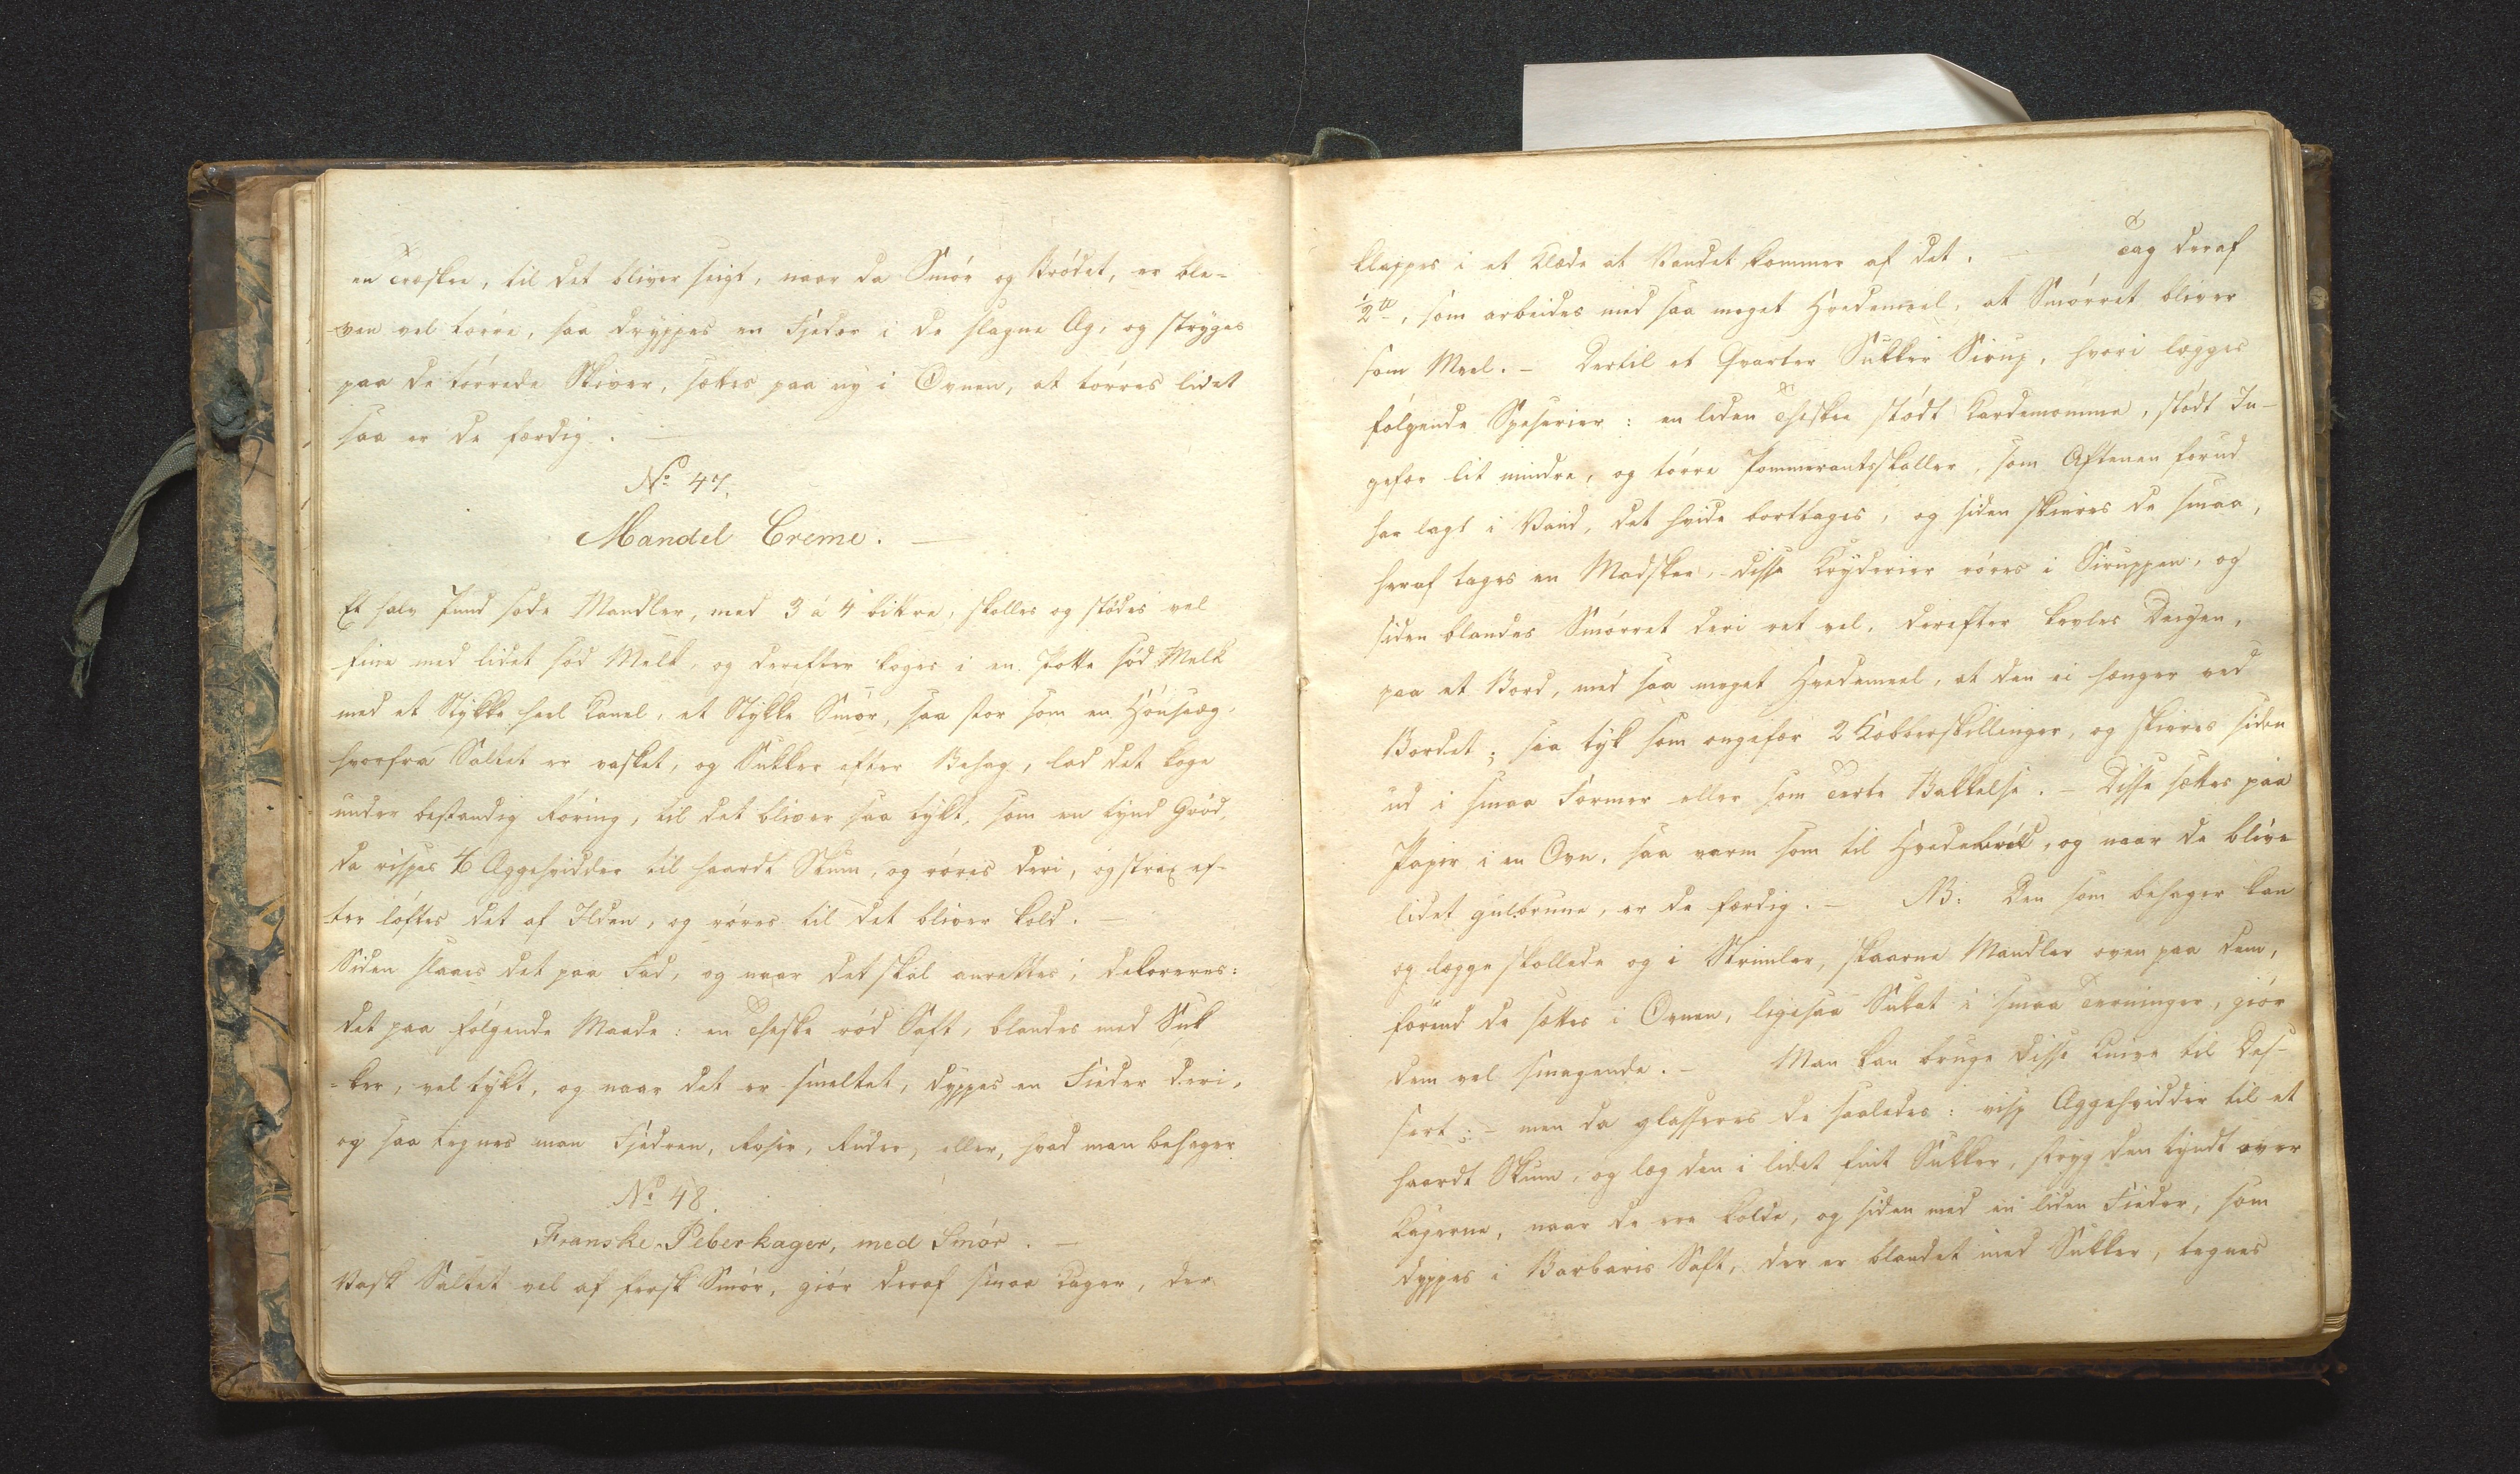 en Træskee, til det bliver seigt, naar da Smór og Bródet, er ble-
ven vel tórre, saa dryppes en Fjeder i de slagne Æg, og stryges
paa de tórrede Skiver, sættes paa ny i Ovnen, at tórres lidet
saa er de færdig. —
No 47.
Mandel Creme. —
Et halv Pund søde Mandler, med 3 á 4 bittre, skolles og stódes vel
fine med lidet sód Melk, og derefter koges i en Potte sód Melk
med et Stykke heel Kanel, et Stykke Smór, saa stor som en Hónseæg,
hvorfra Saltet er vasket, og Sukker efter Behag, lad det koge
under bestandig Róring, til det bliver saa tykt, som en tynd Gród,
da vispes 6 Æggehvidder til haardt Skum, og róres deri, og strax ef-
ter lóftes det af Ilden, og róres til det bliver kold. —
Siden slaaes det paa Fad, og naar det skal anrettes, dekoreres:
det paa fólgende Maade: en Theske ród Saft, blandes med Suk
-ker, vel tykt, og naar det er smeltet, dyppes en Fieder deri,
og saa tegnes man Fjedren, Roser, Ruder, eller, hvad man behager
No 48.
Franske-Peberkager, med Smór. —
Vask Saltet vel af fersk Smór, giór deraf smaa Kager, der
klappes i et Klæde at Vandet kommer af det. Tag deraf
1/2 tt, som arbeides med saa meget Hvedemeel, at Smórret bliver
som Meel. — Dertil et Qvarter Sukker Sirup, hvori lægges
fólgende Speserier: en liden Theskee stódt Kardemomme, stódt In-
gefær lit mindre, og tórre Pommerantsskaller, som Aftenen forud
har lagt i Vand, det hvide borttages, og siden skiæres de smaa,
heraf tages en Madskee, disse Kryderier róres i Siruppen, og
siden blandes Smórret deri ret vel, derefter kevles Deigen,
paa et Bord, med saa meget Hvedemeel, at den ei hænger ved
Bordet; saa tyk som ongefær 2 Kobberskillinger, og skieres siden
ud i smaa Former eller som Terte Bakkelse. — Disse sættes paa
Papir i en Ovn, saa varm som til Hvedebród, og naar de blive
lidet gulbrune, er de færdig. — NB: Den som behager kan
og lægge skollede og i Strimler, skaarne Mandler oven paa dem,
fórend de sættes i Ovnen, ligesaa Sukat i smaa Terninger, giór
dem vel smagende. — Man kan bruge disse Knive til Des-
sert: — men da glasseres de saaledes: visp Æggehvidder til et
haardt Skum, og læg den i lidet fint Sukker, stryg den tyndt over
Kagerne, naar de ere kolde, og siden med en liden Fieder, som
dyppes i Barbaris Saft, der er blandet med Sukker, tegnes